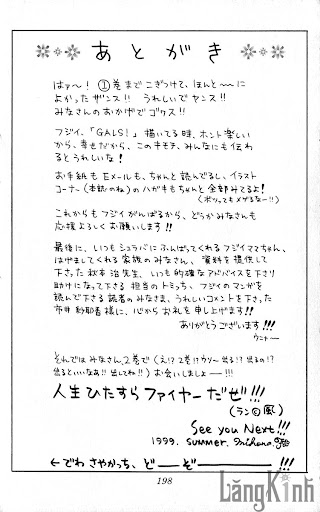 あとがき
はァ〜! ①巻までこぎつけて、ほんと〜に
よかったザンス!! うれしいでヤンス!!
みなさんのおかげでゴワス!!
フジイ、「GALS!」描いてる時、ホント楽しい
から、幸せだから、このキモチ、みんなにも伝わ
るとうれしいな!
お手紙もEメールも、ちゃんと読んでるし、イラスト
コーナー(本誌のね)のハガキもちゃんと全部みてるよ!
(ボツってもメゲるなー!!)
これからもフジイがんばるから、どうかみなさんも
応援よろしくお願いします!!
最後に、いつもシュラバにふんばってくれるフジイママちゃん、
はげましてくれる家族のみなさん、資料を提供して
下さった秋本治先生、いつも的確なアドバイスを下さり
助けになって下さる担当のトミっち、フジイのマンガを
読んで下さる読者のみなさま、うれしいコメントを下った
市井紗耶香様に、心からお礼を申し上げます!!
ありがとうございます!!!
それではみなさん、2巻で(え!?2巻!?
出るといいなあ!! 出してね!!) お会いしましょー!!!
人生ひたすらファイヤーだぜ!!!
(ラン©風)
See you Next!!!
1999. summer. Mihona
←でわさやかっち、どーぞー !!!
198
LăngKính